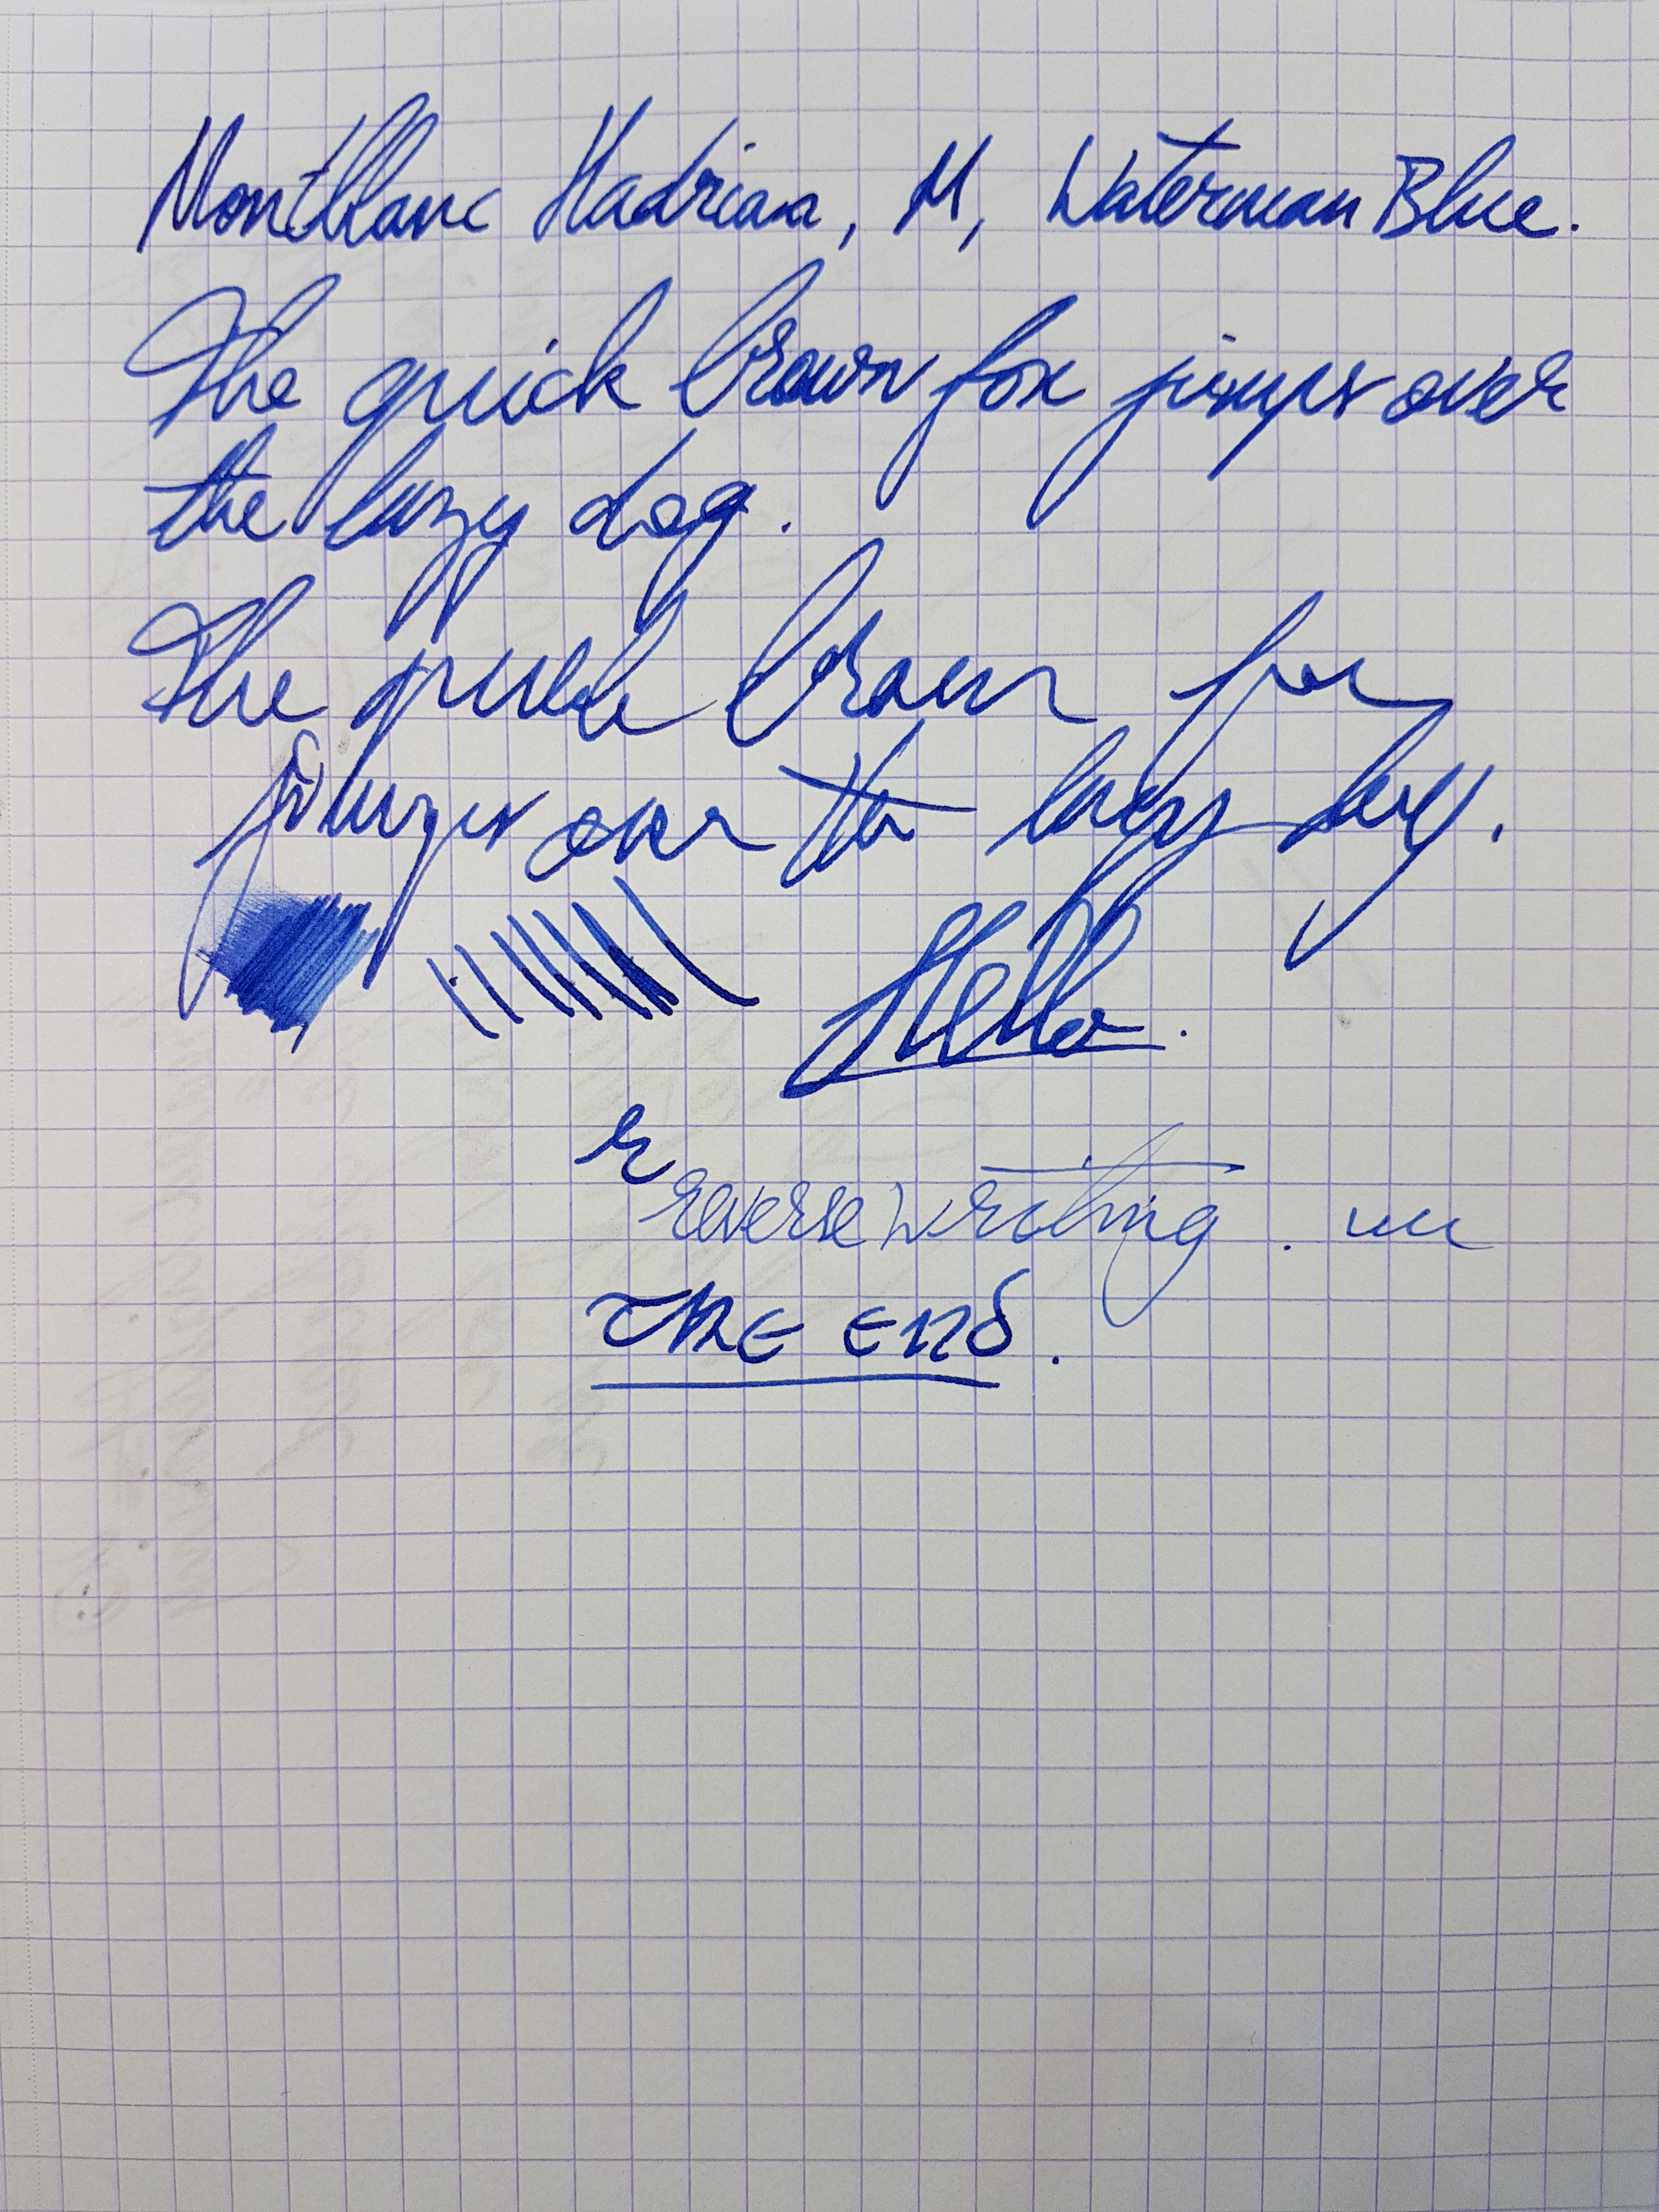 Montblanc Hadrian, M, Waterman Blue.
The quick brown fox jumps over
the lazy dog.
The quick brown fox
jumps over the lazy dog.
Hello.
r
reverse writing.
THE END.